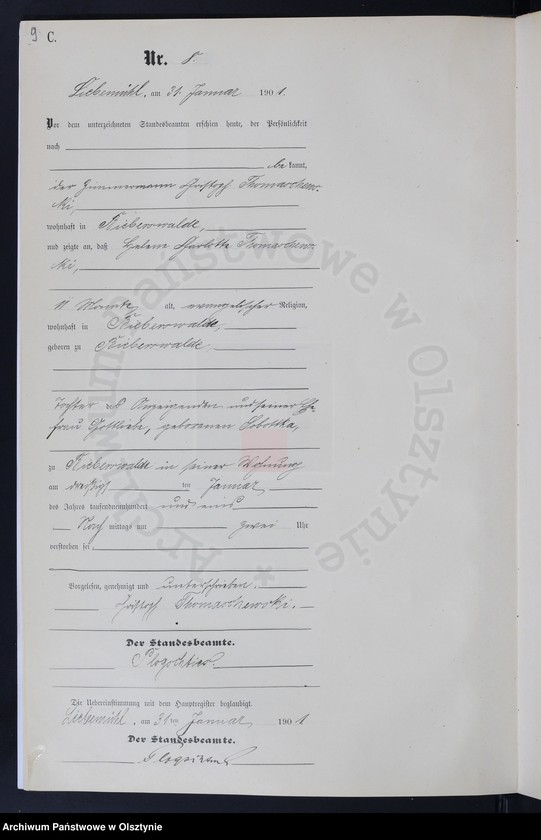 9 C.
Nr. 8.
Liebemühl, am 31. Januar 1901.
Vor dem unterzeichneten Standesbeamten erschien heute, der Persönlichkeit
nach
bekannt,
der Zimmermann Christoph Thomaschews-
ki,
wohnhaft in Bieberswalde,
und zeigte an, daß Helene Charlotte Thomaschews-
ki,
11 Monate alt, evangelischer Religion,
wohnhaft in Bieberswalde,
geboren zu Bieberswalde
Tochter des Anzeigenden und seiner Ehe-
frau Gottliebe, geborenen Sobottka,
zu Bieberswalde in seiner Wohnung
am dreißigsten Januar
des Jahres tausendneunhundert und eins
Nachmittags um zwei Uhr
verstorben sei.
Vorgelesen, genehmigt und unterschrieben.
Christoph Thomaschewski.
Der Standesbeamte.
Die Uebereinstimmung mit dem Hauptregister beglaubigt.
Liebemühl, am 31ten Januar 1901
Der Standesbeamte.
Archiwum Państwowe w Olsztynie *
Archiwum Państwowe w Olsztynie